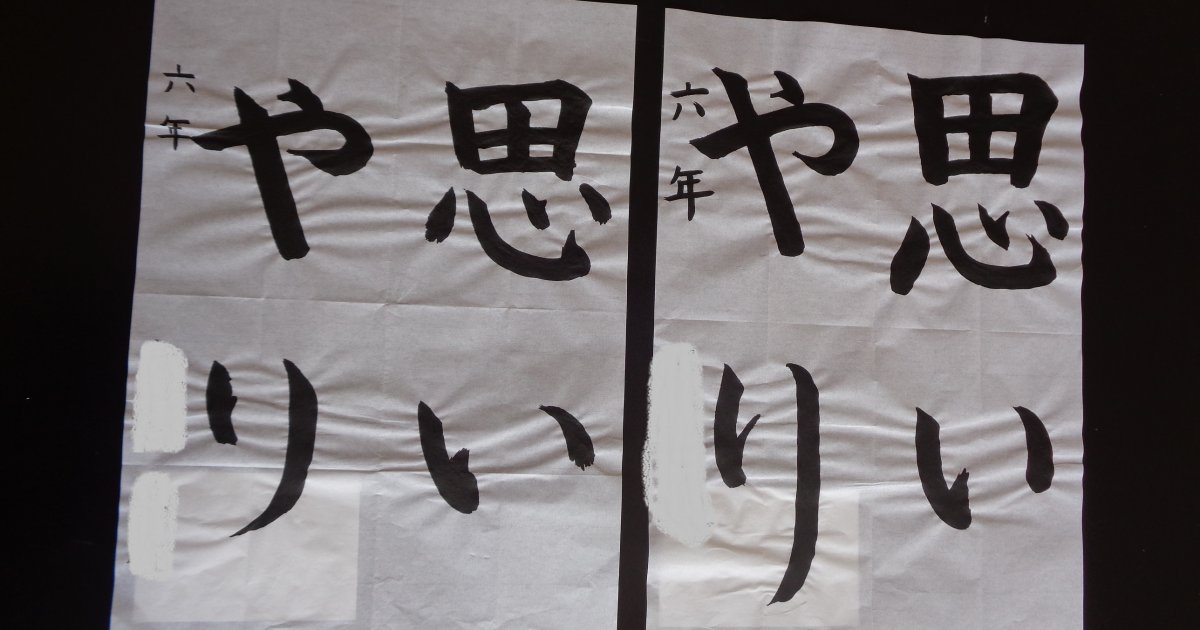 思い
やり
六年
思い
やり
六年